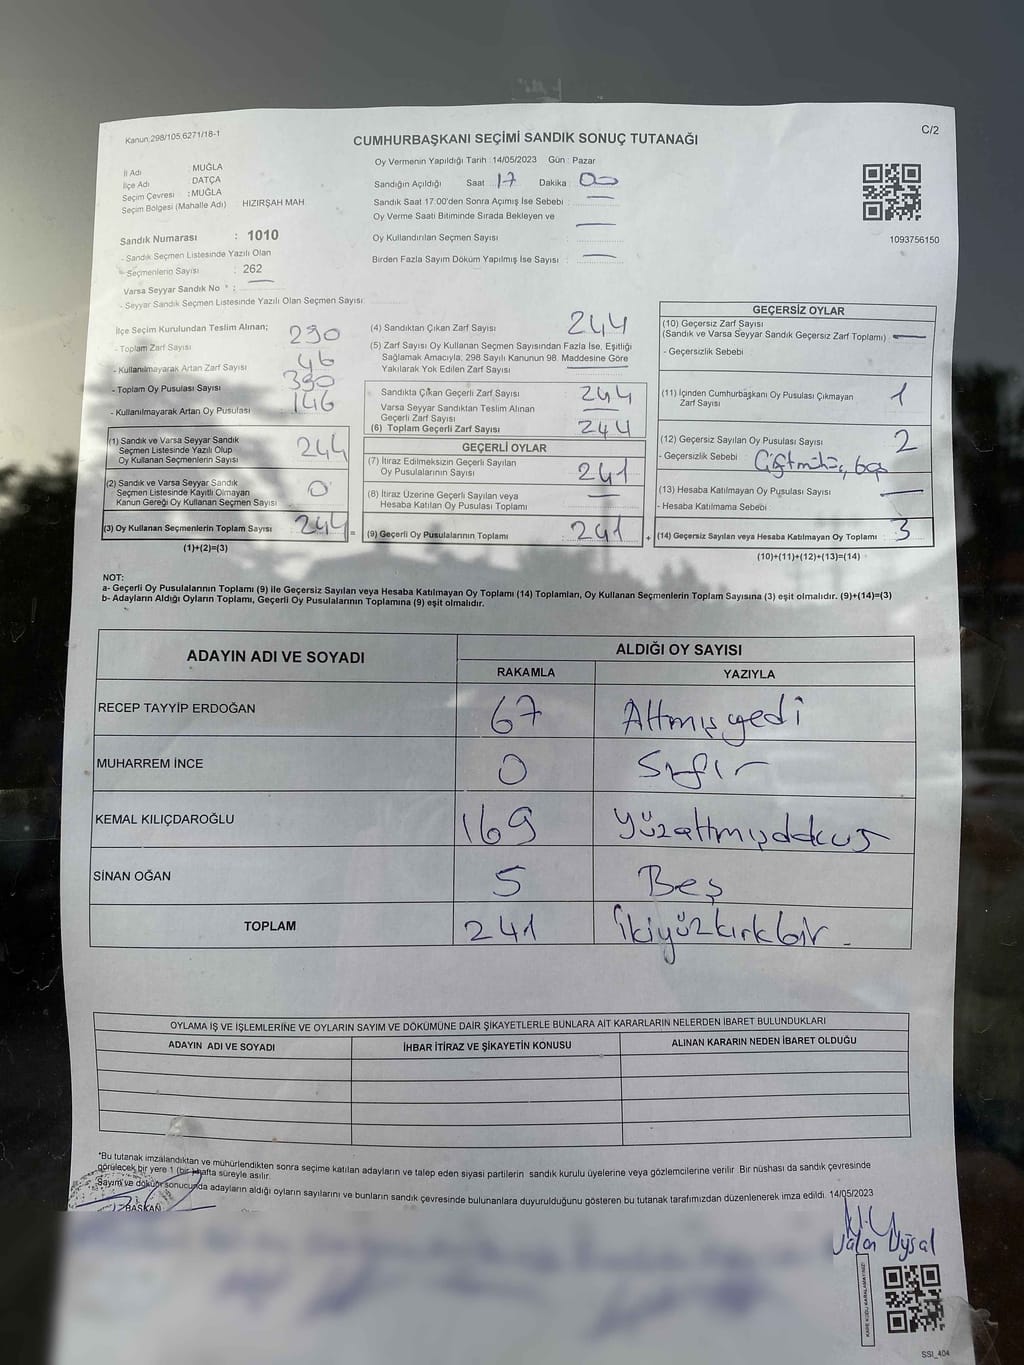 Kanun 298/105,6271/18-1
CUMHURBAŞKANI SEÇİMİ SANDIK SONUÇ TUTANAĞI
C/2
İl Adı : MUĞLA
İlçe Adı : DATÇA
Seçim Çevresi : MUĞLA
Seçim Bölgesi (Mahalle Adı) HIZIRŞAH MAH.
Oy Vermenin Yapıldığı Tarih : 14/05/2023 Gün : Pazar
Sandığın Açıldığı Saat 17 Dakika 00
Sandık Saat 17:00'den Sonra Açılmış İse Sebebi : —
Oy Verme Saati Bitiminde Sırada Bekleyen ve
Oy Kullandırılan Seçmen Sayısı : —
Birden Fazla Sayım Döküm Yapılmış İse Sayısı : —
1093756150
Sandık Numarası : 1010
- Sandık Seçmen Listesinde Yazılı Olan
- Seçmenlerin Sayısı : 262
Varsa Seyyar Sandık No * : —
- Seyyar Sandık Seçmen Listesinde Yazılı Olan Seçmen Sayısı :
İlçe Seçim Kurulundan Teslim Alınan;
- Toplam Zarf Sayısı 290
- Kullanılmayarak Artan Zarf Sayısı 46
- Toplam Oy Pusulası Sayısı 390
- Kullanılmayarak Artan Oy Pusulası 146
(1) Sandık ve Varsa Seyyar Sandık
Seçmen Listesinde Yazılı Olup
Oy Kullanan Seçmenlerin Sayısı 244
(2) Sandık ve Varsa Seyyar Sandık
Seçmen Listesinde Kayıtlı Olmayan
Kanun Gereği Oy Kullanan Seçmen Sayısı 0
(3) Oy Kullanan Seçmenlerin Toplam Sayısı 244 =
(1)+(2)=(3)
(4) Sandıktan Çıkan Zarf Sayısı : 244
(5) Zarf Sayısı Oy Kullanan Seçmen Sayısından Fazla İse, Eşitliği
Sağlamak Amacıyla; 298 Sayılı Kanunun 98. Maddesine Göre
Yakılarak Yok Edilen Zarf Sayısı : —
Sandıkta Çıkan Geçerli Zarf Sayısı : 244
Varsa Seyyar Sandıktan Teslim Alınan
Geçerli Zarf Sayısı : —
(6) Toplam Geçerli Zarf Sayısı : 244
GEÇERLİ OYLAR
(7) İtiraz Edilmeksizin Geçerli Sayılan
Oy Pusulalarının Sayısı : 241
(8) İtiraz Üzerine Geçerli Sayılan veya
Hesaba Katılan Oy Pusulası Toplamı : —
(9) Geçerli Oy Pusulalarının Toplamı : 241 +
GEÇERSİZ OYLAR
(10) Geçersiz Zarf Sayısı
(Sandık ve Varsa Seyyar Sandık Geçersiz Zarf Toplamı) : —
- Geçersizlik Sebebi :
(11) İçinden Cumhurbaşkanı Oy Pusulası Çıkmayan
Zarf Sayısı : 1
(12) Geçersiz Sayılan Oy Pusulası Sayısı : 2
- Geçersizlik Sebebi : Çiftmühür, boş
(13) Hesaba Katılmayan Oy Pusulası Sayısı : —
- Hesaba Katılmama Sebebi :
(14) Geçersiz Sayılan veya Hesaba Katılmayan Oy Toplamı : 3
(10)+(11)+(12)+(13)=(14)
NOT:
a- Geçerli Oy Pusulalarının Toplamı (9) ile Geçersiz Sayılan veya Hesaba Katılmayan Oy Toplamı (14) Toplamları, Oy Kullanan Seçmenlerin Toplam Sayısına (3) eşit olmalıdır. (9)+(14)=(3)
b- Adayların Aldığı Oyların Toplamı, Geçerli Oy Pusulalarının Toplamına (9) eşit olmalıdır.
ADAYIN ADI VE SOYADI
ALDIĞI OY SAYISI
RAKAMLA YAZIYLA
RECEP TAYYİP ERDOĞAN 67 Altmışyedi
MUHARREM İNCE 0 Sıfır
KEMAL KILIÇDAROĞLU 169 Yüzaltmışdokuz
SİNAN OĞAN 5 Beş
TOPLAM 241 İkiyüzkırkbir
OYLAMA İŞ VE İŞLEMLERİNE VE OYLARIN SAYIM VE DÖKÜMÜNE DAİR ŞİKAYETLERLE BUNLARA AİT KARARLARIN NELERDEN İBARET BULUNDUKLARI
ADAYIN ADI VE SOYADI İHBAR İTİRAZ VE ŞİKAYETİN KONUSU ALINAN KARARIN NEDEN İBARET OLDUĞU
*Bu tutanak imzalandıktan ve mühürlendikten sonra seçime katılan adayların ve talep eden siyasi partilerin sandık kurulu üyelerine veya gözlemcilerine verilir. Bir nüshası da sandık çevresinde
görülecek bir yere 1 (bir) hafta süreyle asılır.
Sayım ve döküm sonucunda adayların aldığı oyların sayılarını ve bunların sandık çevresinde bulunanlara duyurulduğunu gösteren bu tutanak tarafımızdan düzenlenerek imza edildi. 14/05/2023
BAŞKAN
Jalan Uysal
KARE KODU KARALAMAYINIZ!
SSI_404